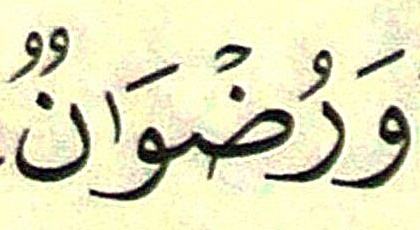 وَرُضْوَانٌ